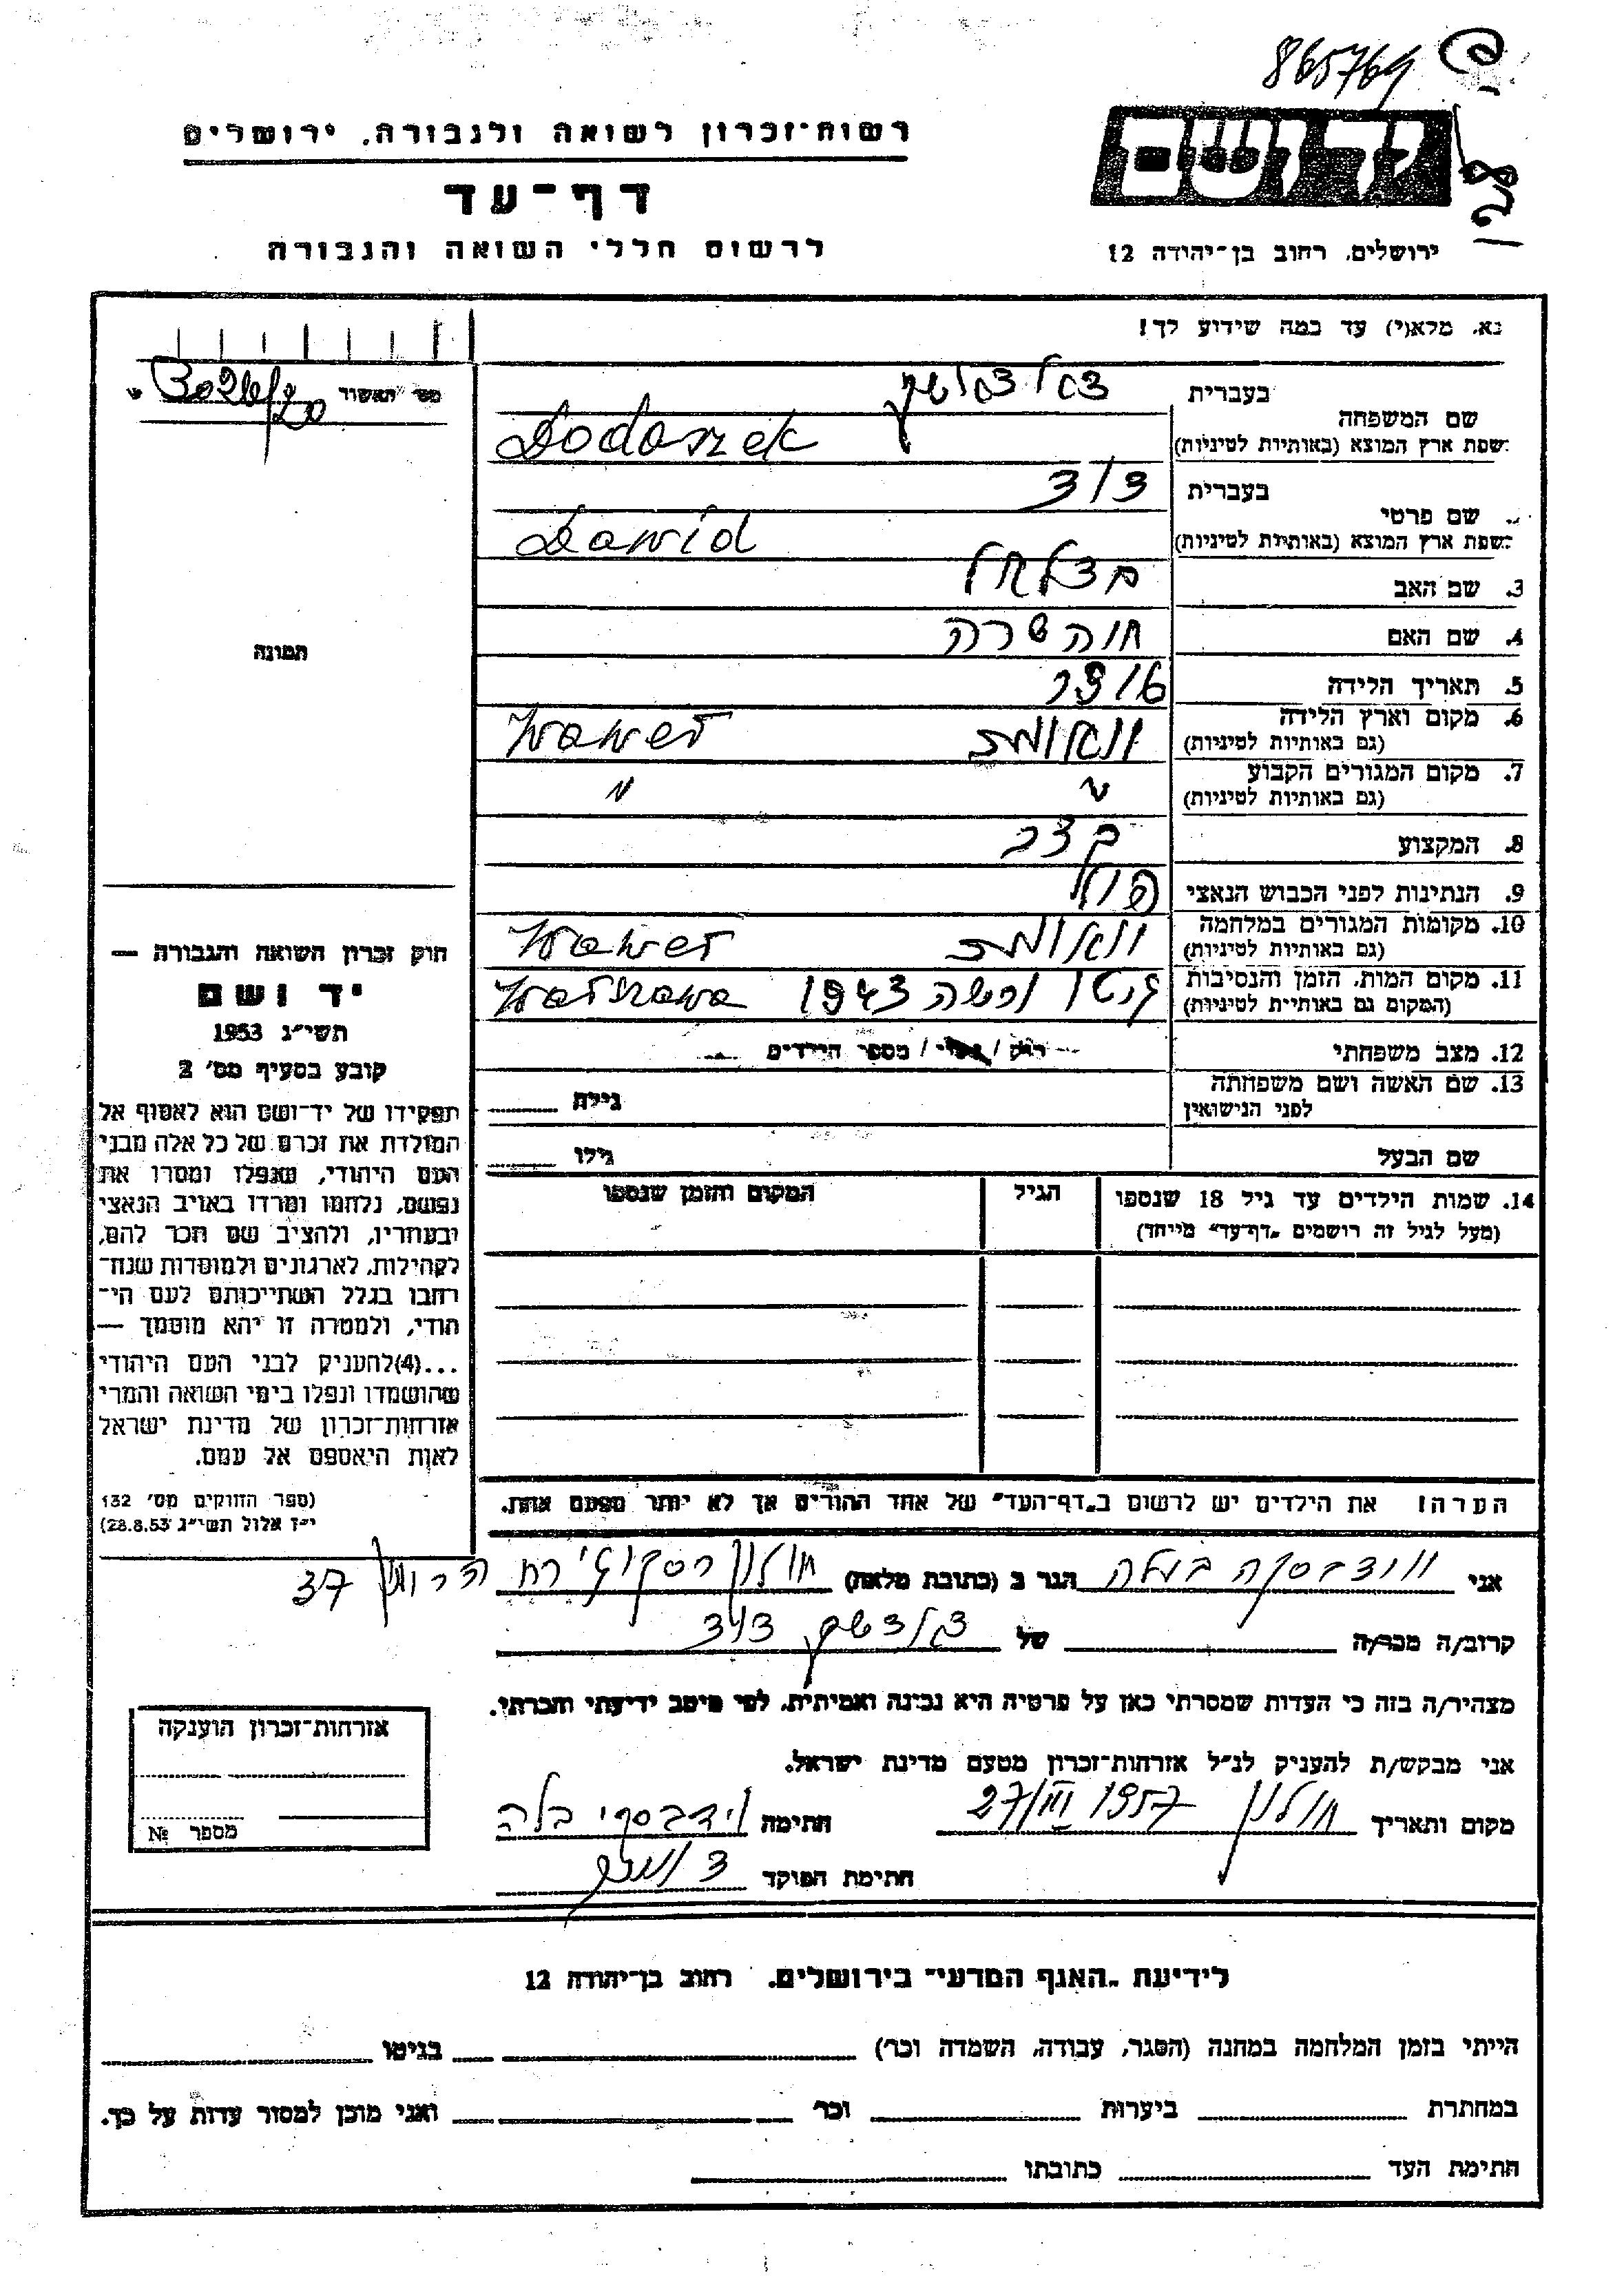 865764
רשות-זכרון לשואה ולגבורה, ירושלים
יד ושם
דף-עד
לרשום חללי השואה והגבורה
ירושלים, רחוב בן-יהודה 12
נא, מלא(י) עד כמה שידוע לך!
בעברית
שם המשפחה
בשפת ארץ המוצא (באותיות לטיניות) Dodaszek
בעברית דוד
שם פרטי
בשפת ארץ המוצא (באותיות לטיניות) Dawid
3. שם האב בצלאל
4. שם האם חוה שרה
5. תאריך הלידה
6. מקום וארץ הלידה
(גם באותיות לטיניות) Wawer
7. מקום המגורים הקבוע
(גם באותיות לטיניות) " "
8. המקצוע קצב
9. הנתינות לפני הכבוש הנאצי פול
10. מקומות המגורים במלחמה
(גם באותיות לטיניות) Wawer
11. מקום המות, הזמן והנסיבות גיטו ורשה 1943 Warszawa
(המקום גם באותיות לטיניות)
12. מצב משפחתי רוק / נשוי / מספר הילדים
13. שם האשה ושם משפחתה
לפני הנישואין גילה
שם הבעל גילו
14. שמות הילדים עד גיל 18 שנספו הגיל המקום והזמן שנספו
(מעל לגיל זה רושמים "דף-עד" מיוחד)
הערה! את הילדים יש לרשום ב"דף-העד" של אחד ההורים אך לא יותר מפעם אחת.
תמונה
חוק זכרון השואה והגבורה —
יד ושם
תשי"ג 1953
קובע בסעיף מס' 2
תפקידו של יד-ושם הוא לאסוף אל
המולדת את זכרם של כל אלה מבני
העם היהודי, שנפלו ומסרו את
נפשם, נלחמו ומרדו באויב הנאצי
ובעוזריו, ולהציב שם וזכר להם,
לקהילות, לארגונים ולמוסדות שנח-
רבו בגלל השתייכותם לעם הי-
הודי, ולמטרה זו יהא מוסמך —
...(4) להעניק לבני העם היהודי
שהושמדו ונפלו בימי השואה והמרי
אזרחות-זכרון של מדינת ישראל
לאות היאספם אל עמם.
(ספר החוקים מס' 132
י"ז אלול תשי"ג 28.8.53)
אני בלה הגר ב (כתובת מלאה) חולון 37
קרוב/ה מכר/ה של דוד
מצהיר/ה בזה כי העדות שמסרתי כאן על פרטיה היא נכונה ואמיתית, לפי מיטב ידיעתי והכרתי.
אני מבקש/ת להעניק לנ"ל אזרחות-זכרון מטעם מדינת ישראל.
מקום ותאריך חולון 27/III 1957 חתימה בלה
חתימת הפוקד
אזרחות-זכרון הוענקה
מספר №
לידיעת "האגף המדעי" בירושלים, רחוב בן-יהודה 12
הייתי בזמן המלחמה במחנה (הסגר, עבודה, השמדה וכו') בגיטו
במחתרת ביערות וכו' ואני מוכן למסור עדות על כך.
חתימת העד כתובתו